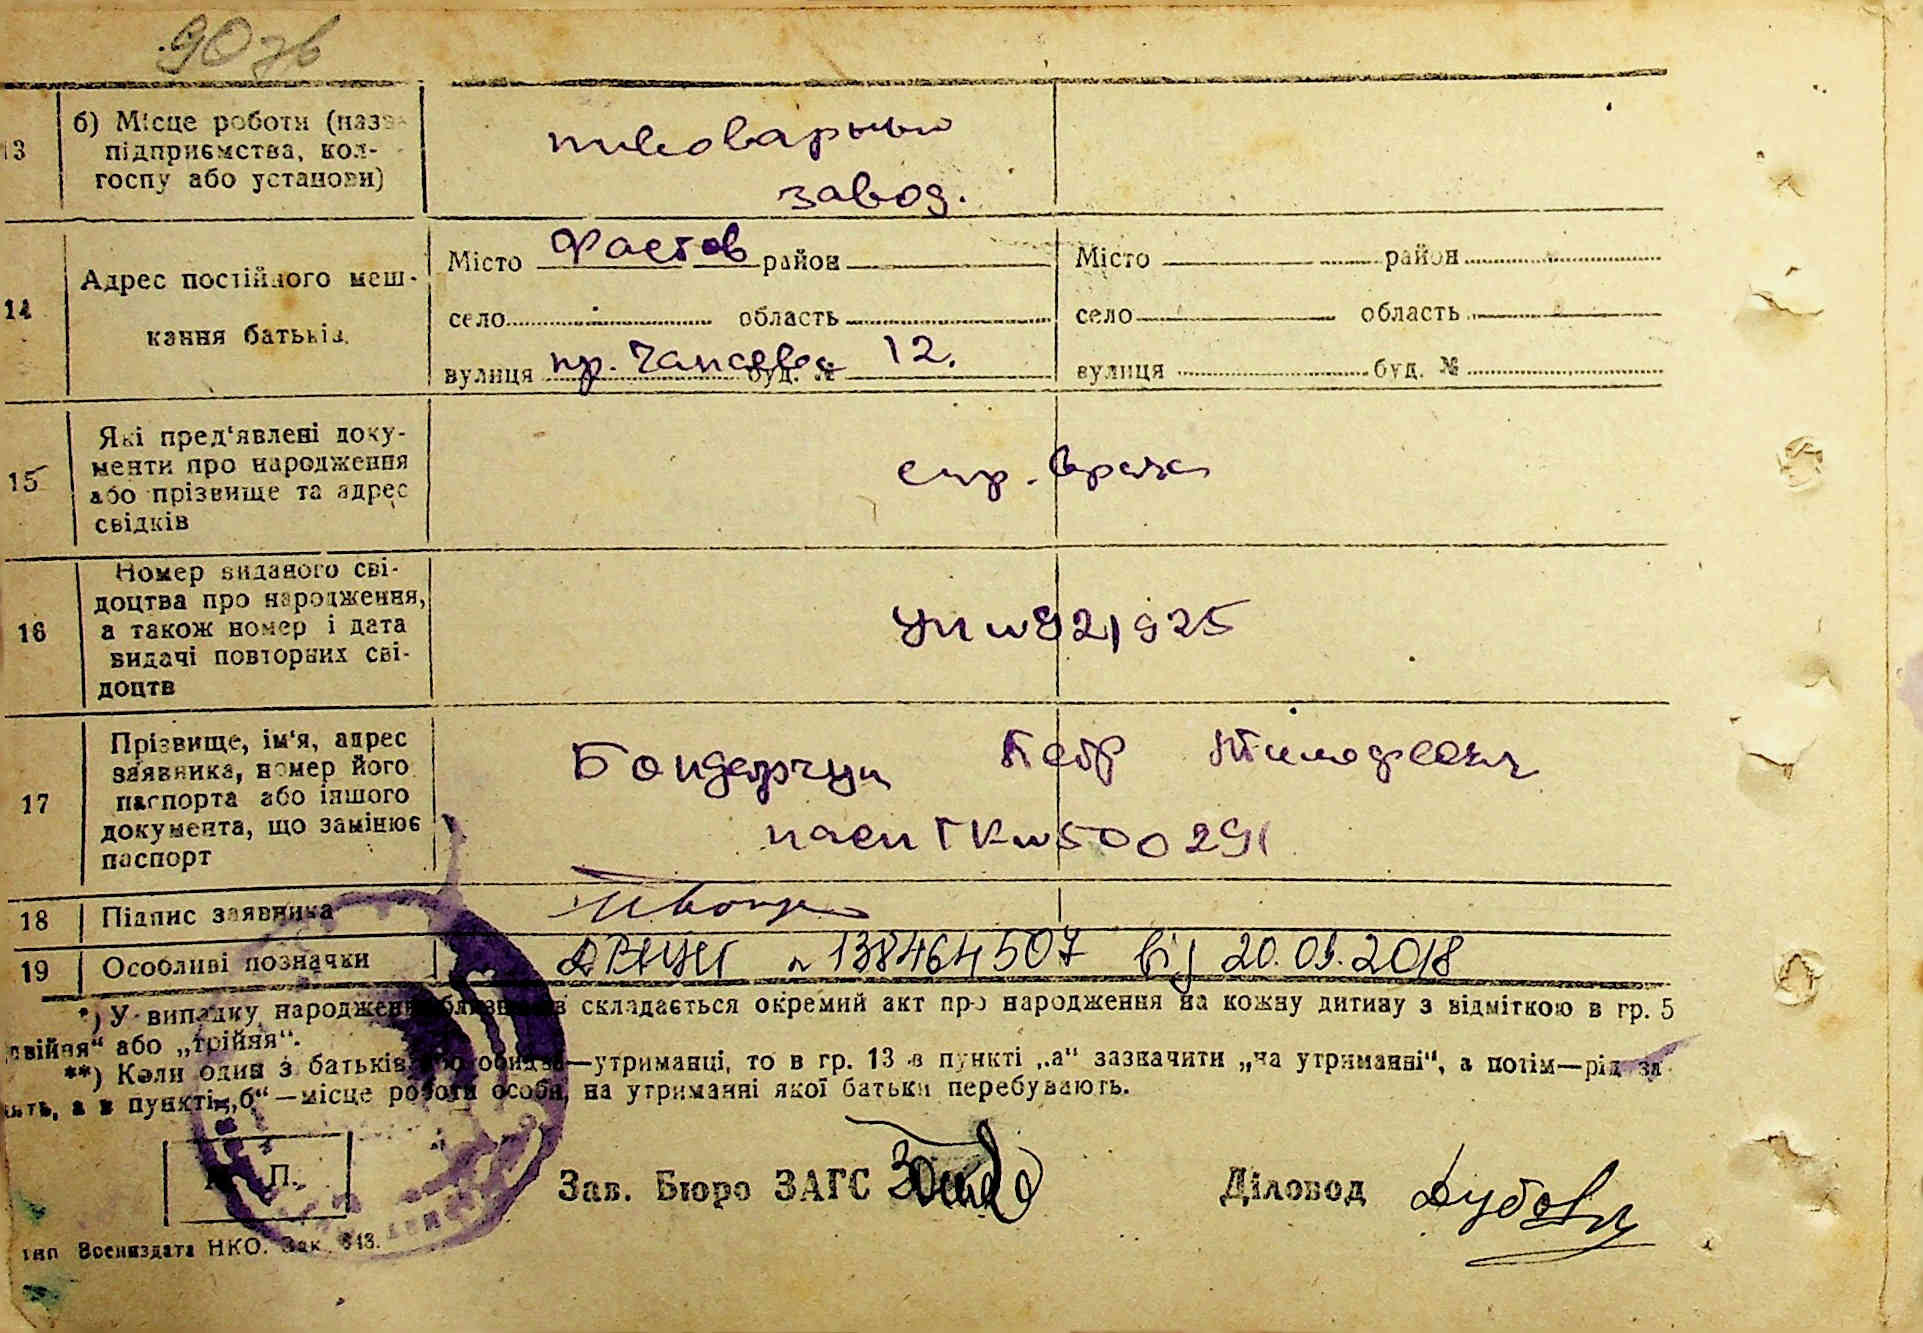 90 зв
13 б) Місце роботи (назв
підприємства, кол-
госпу або установи)
пивоварный
завод.
14 Адрес постійного меш-
кання батьків.
Місто Фастов район Місто район
село область село область
вулиця пр. Чапаева буд. № 12. вулиця буд. №
15 Які пред'явлені доку-
менти про народження
або прізвище та адрес
свідків
спр. врача
16 Номер виданого сві-
доцтва про народження,
а також номер і дата
видачі повторних сві-
доцтв
921925
17 Прізвище, ім'я, адрес
заявника, номер його
паспорта або іншого
документа, що замінює
паспорт
Бондарчук Петр Тимофеевич
пасп ГК № 500291
18 Підпис заявника
19 Особливі позначки
№ 138464507 від 20.09.2018
*) У випадку народження близнюків складається окремий акт про народження на кожну дитину з відміткою в гр. 5
двійня“ або „трійня“.
**) Коли один з батьків або обидва—утриманці, то в гр. 13 в пункті „а“ зазначити „на утриманні“, а потім—рід за
нять, а в пункті „б“—місце роботи особи, на утриманні якої батьки перебувають.
М. П.
Зав. Бюро ЗАГС Діловод
тип Воениздата НКО. Зак. 643.